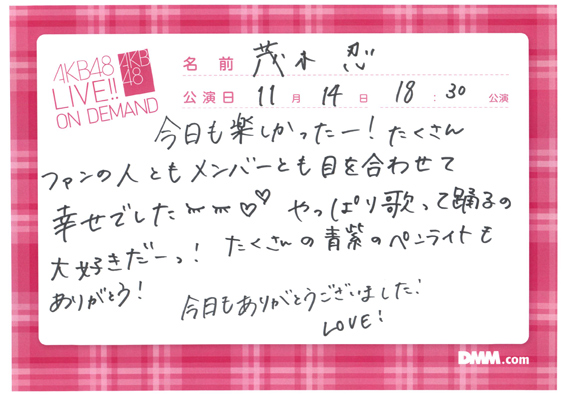 AKB48
LIVE!!
ON DEMAND
AKB
48
名前 茂木 忍
公演日 11月 14日 18:30 公演
今日も楽しかったー！たくさん
ファンの人ともメンバーとも目を合わせて
幸せでした♡♡ やっぱり歌って踊るの
大好きだーっ！ たくさんの青紫のペンライトも
ありがとう！
今日もありがとうございました！
LOVE！
DMM.com